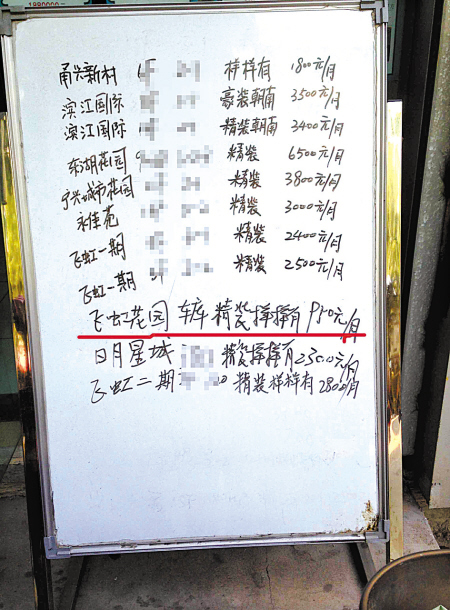 甬兴新村 样样有 1800元/月
滨江国际 豪装朝南 3500元/月
滨江国际 精装朝南 3400元/月
东湖花园 精装 6500元/月
宁兴城市花园 精装 3800元/月
永佳苑 精装 3000元/月
飞虹一期 精装 2400元/月
飞虹一期 精装 2500元/月
飞虹花园 车库 精装样样有 950元/月
日月星城 精装样样有 2300元/月
飞虹二期 精装样样有 2800/月